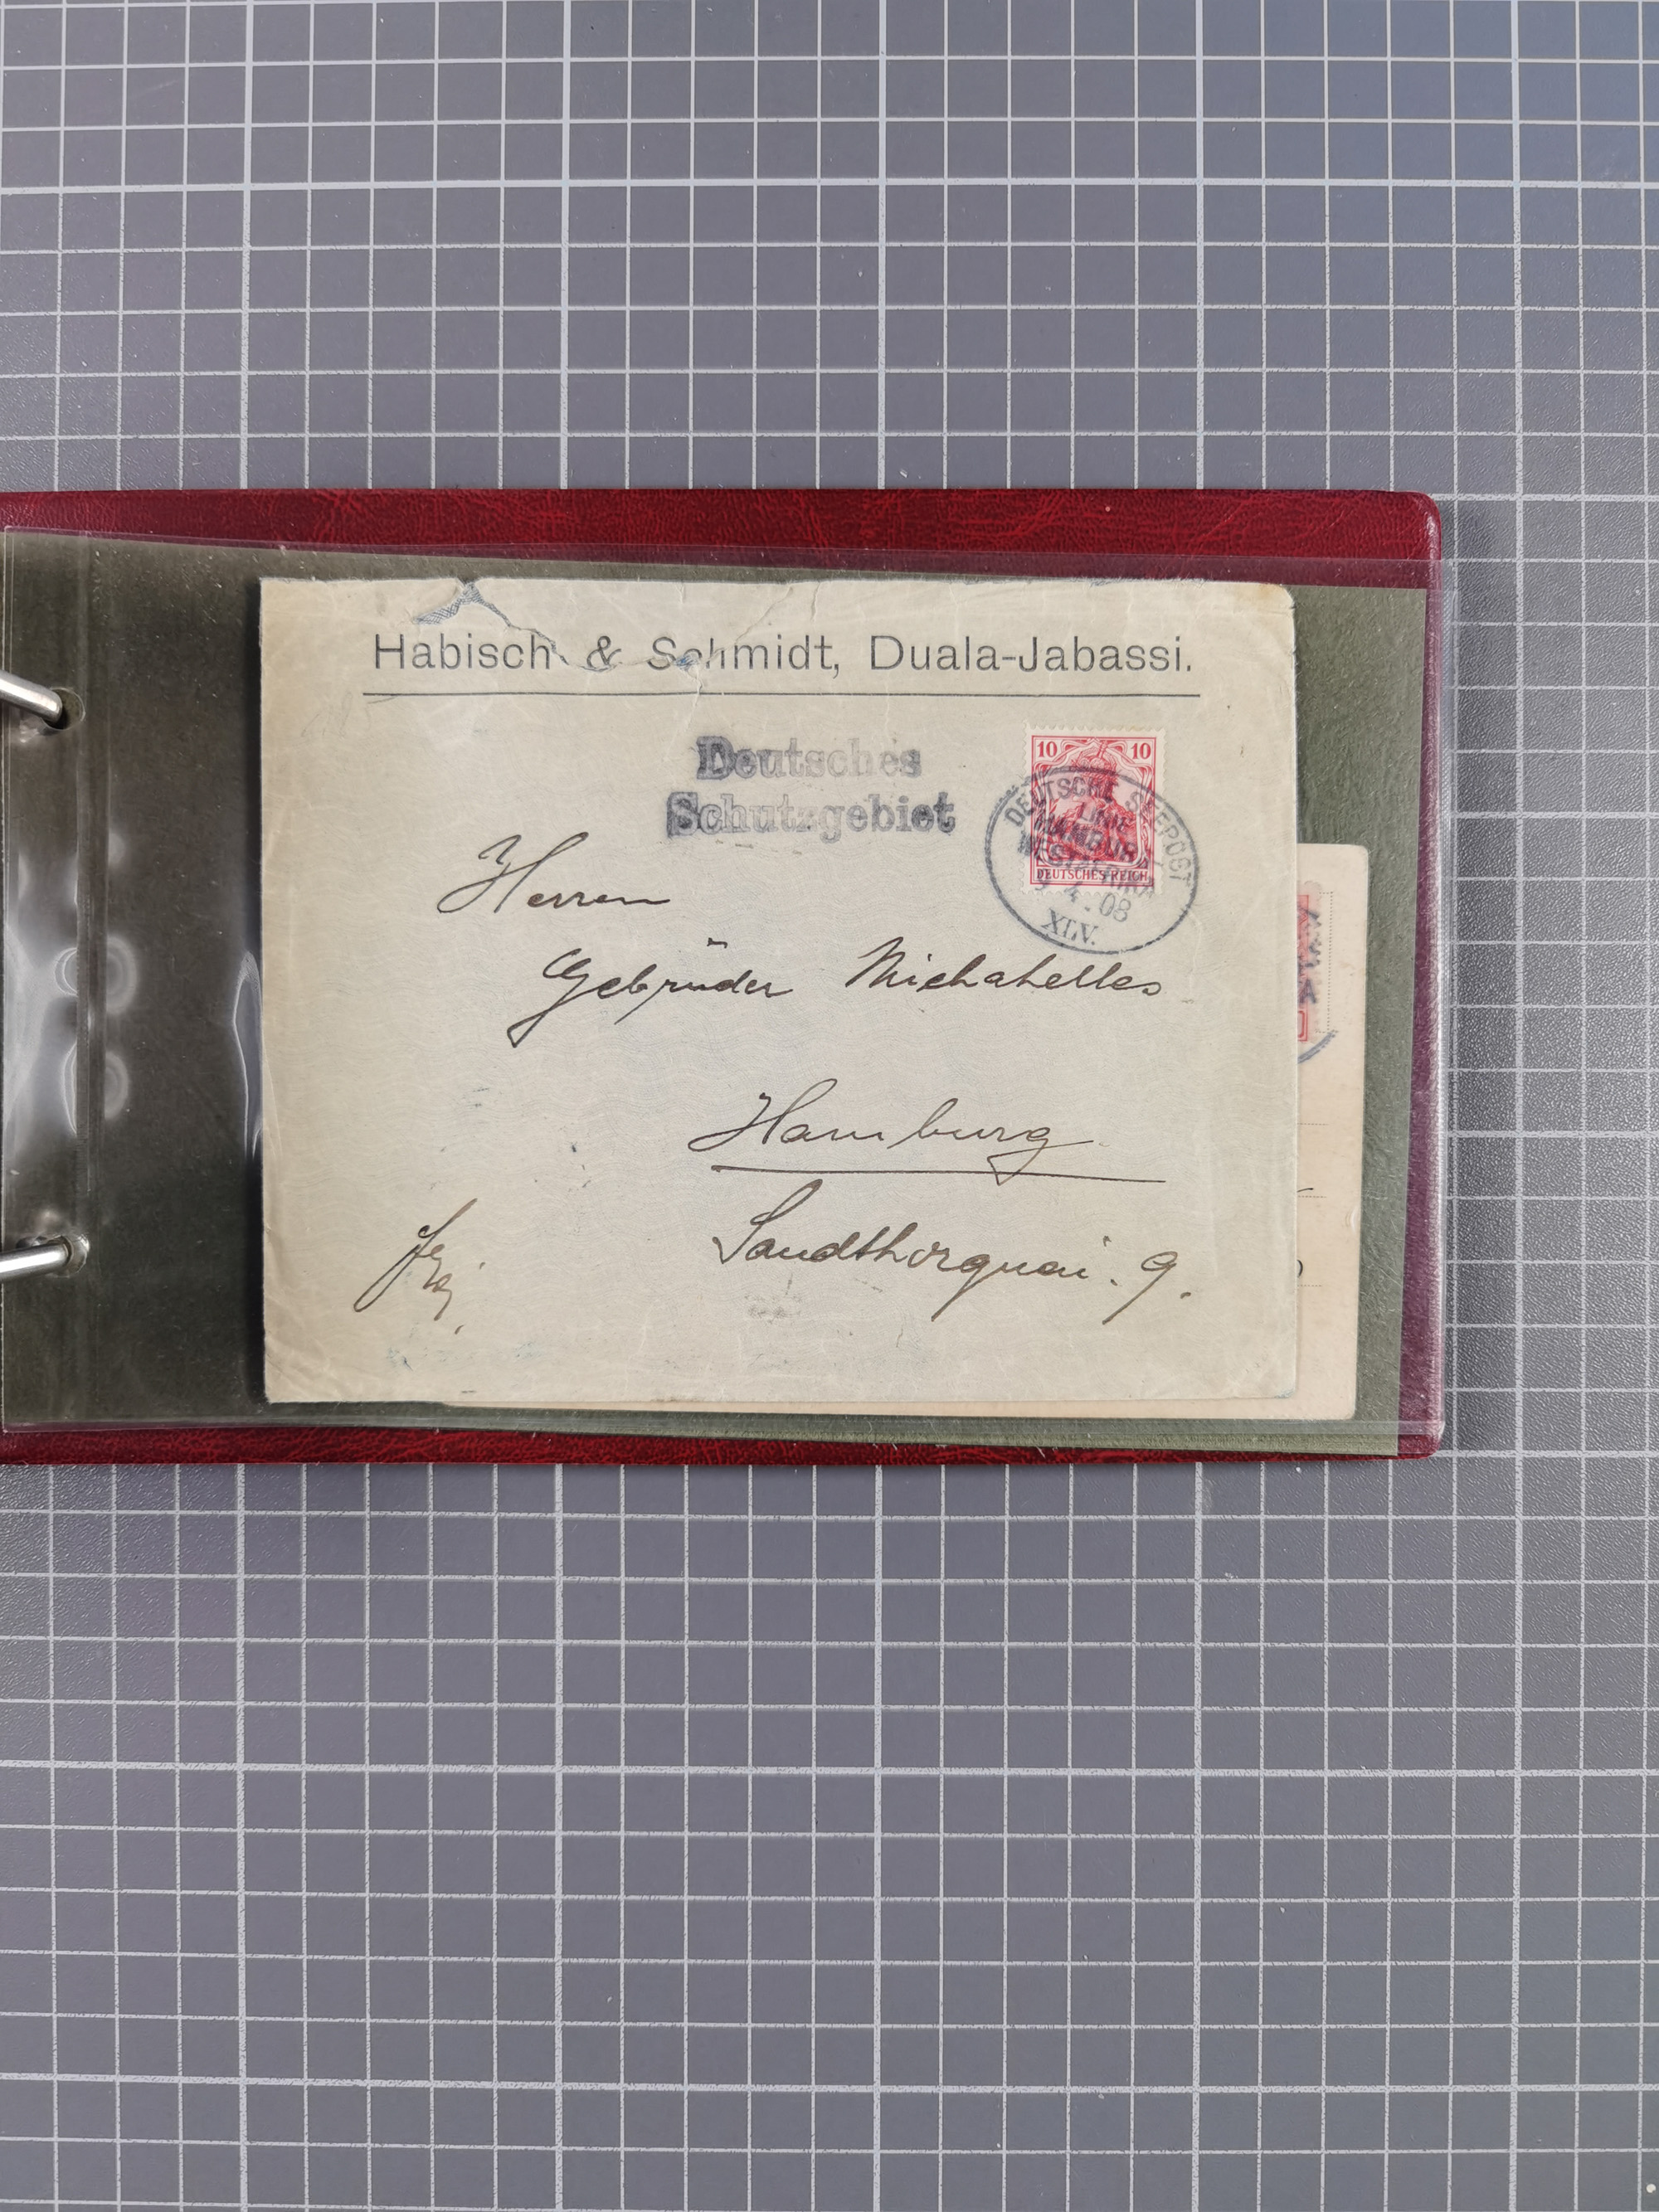 Habisch & Schmidt, Duala-Jabassi.
Deutsches
Schutzgebiet
10 10
DEUTSCHES REICH
DEUTSCHE SEEPOST
LINIE
HAMBURG
WESTAFRIKA
9 4. 08
XLV.
Herren
Gebrüder Michahelles
Hamburg
Sandthorquai. 9.